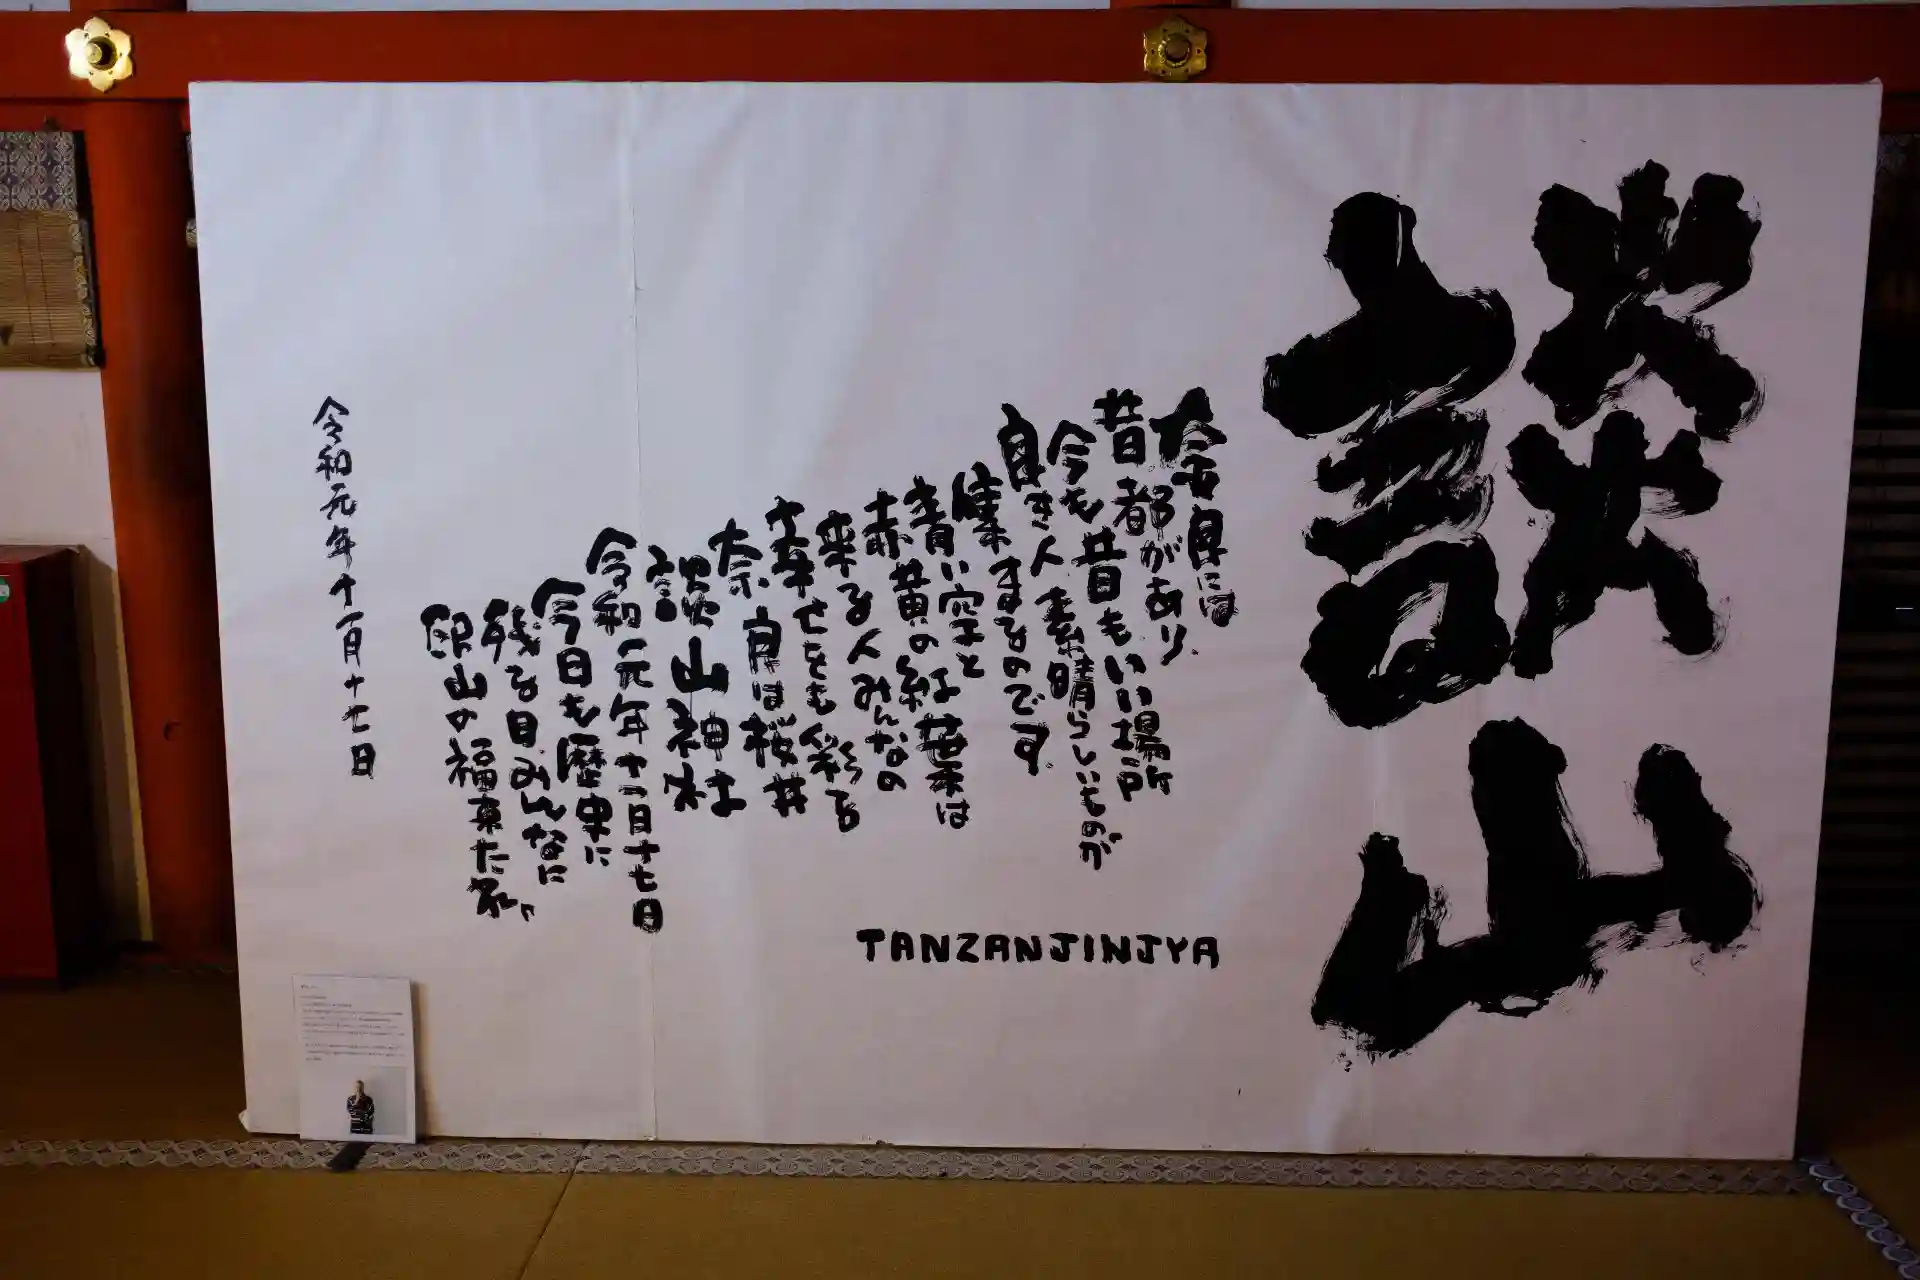 談山
奈良には
昔都があり
今も昔もいい場所
良き人素晴らしいものが
集まるのです
青い空と
赤黄の紅葉は
来る人みんなの
幸せをも彩る
奈良は桜井
談山神社
令和元年十一月十七日
今日も歴史に
残る日みんなに
山の福来たる。
TANZANJINJYA
令和元年十一月十七日